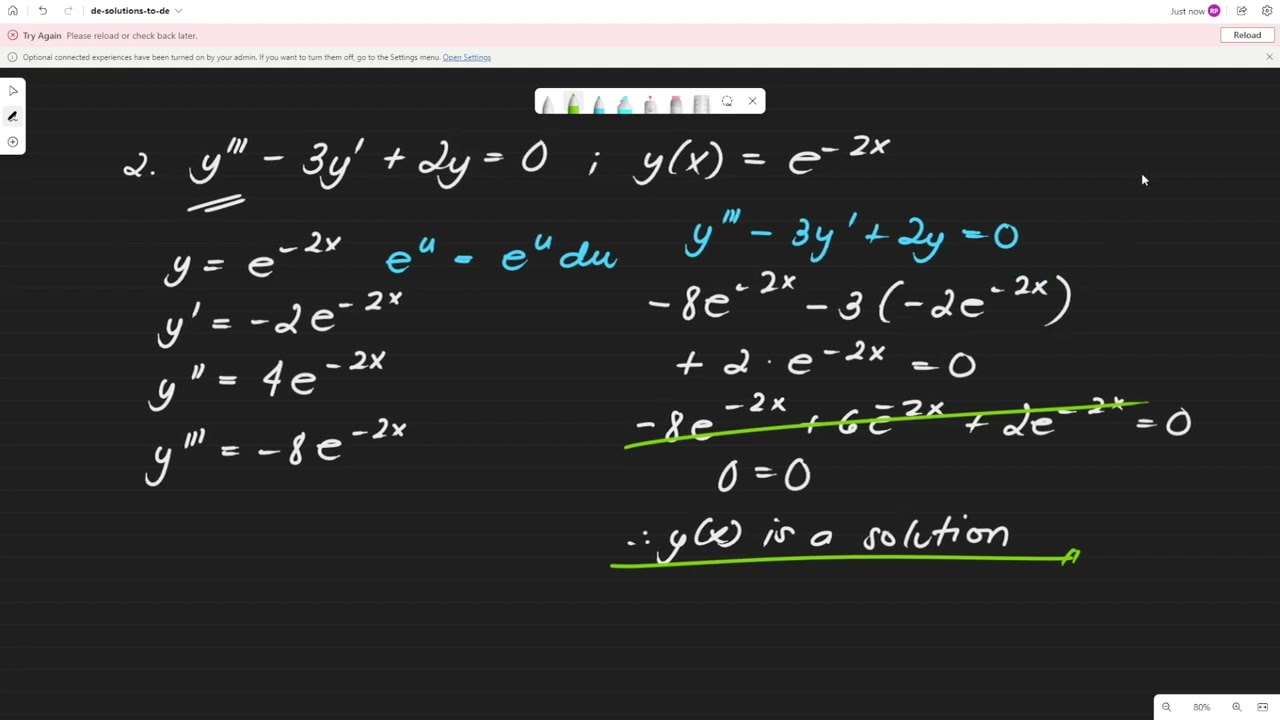 de-solutions-to-de
Just now RP
Try Again Please reload or check back later.
Reload
Optional connected experiences have been turned on by your admin. If you want to turn them off, go to the Settings menu. Open Settings
2. y''' - 3y' + 2y = 0 ; y(x) = e^{-2x}
y = e^{-2x}
e^u = e^u du
y' = -2e^{-2x}
y'' = 4e^{-2x}
y''' = -8e^{-2x}
y''' - 3y' + 2y = 0
-8e^{-2x} - 3(-2e^{-2x})
+ 2 · e^{-2x} = 0
-8e^{-2x} + 6e^{-2x} + 2e^{-2x} = 0
0 = 0
∴ y(x) is a solution
80%